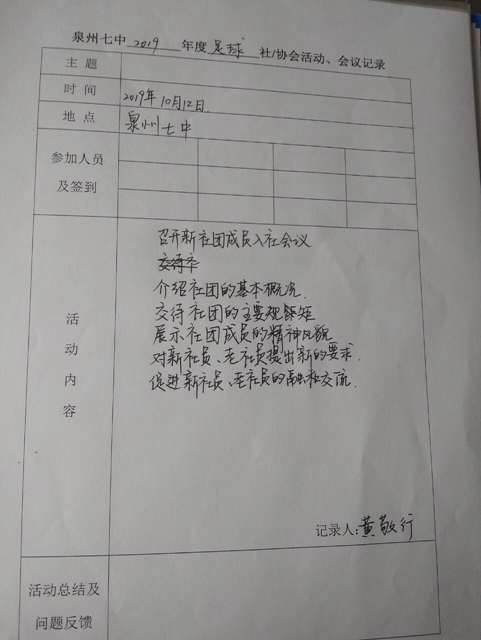 泉州七中 2019 年度 足球 社/协会活动、会议记录
主 题
时 间 2019年10月12日
地 点 泉州七中
参加人员
及签到
召开新社团成员入社会议
介绍社团的基本概况.
交待社团的主要规章矩
展示社团成员的精神风貌
对新社员、老社员提出新的要求.
促进新社员、老社员的融和交流.
活
动
内
容
记录人:黄敬行
活动总结及
问题反馈